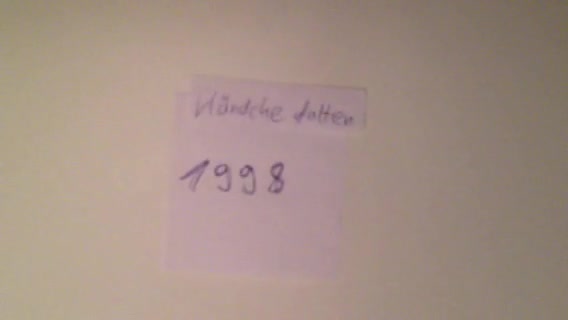 Händche falten
1998